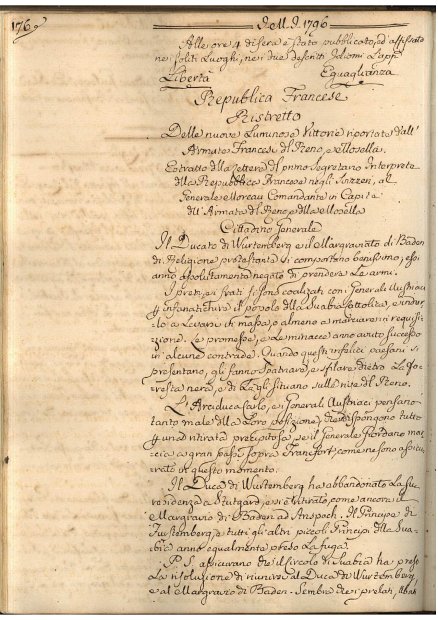 176
1796
Alle ore 4 di sera è stato pubblicato, ed affissato
nei soliti Luoghi, nei due descritti Idiomi L'app.
Libertà Eguaglianza
Republica Francese
Ristretto
Delle nuove Luminose Vittorie riportate dall'
Armate Francesi di Reno, e Mosella.
Estratto della Lettera del primo Segretario Interprete
della Repubblica Francese negli Svizzeri, al
Generale Moreau Comandante in Capite
dell'Armata del Reno, e della Mosella
Cittadino Generale
Il Ducato di Wurtemberg e il Margraviato di Baden
di Religione protestante si comportono benissimo, essi
anno assolutamente negato di prendere le armi.
I preti, e i frati si sono coalizati con i Generali Austriaci
infanatichire il popolo della Suabia Cattolica, e indur
lo a levarsi in massa, o almeno a marciare in requisi
zione. Le promesse, e le minacce anno avuto successo
in alcune contrade. Quando questi infelici paesani si
presentano, gli fanno sfilare dietro La Fo
resta nera, e di La gli situano sulle rive del Reno.
L'Arciduca Carlo, e i Generali Austriaci pensano
tanto male della Loro posizione, che dispongono tutto
una ritirata precipitosa, se il Generale Giordano mar
cia a gran passi sopra Francfort, come ne sono assicu
rato in questo momento.
Il Duca di Wurtemberg ha abbandonato La sua
residenza a Stutgard, e si è ritirato, come ancora il
Margravio di Baden ad Anspach. Il Principe di
Furstemberg, e tutti gli altri piccoli Principi della Sua-
bia anno egualmente preso La fuga.
P. S. assicurano che il Circolo di Suabia ha preso
La risoluzione di riunirsi al Duca di Wurtemberg,
e al Margravio di Baden. Sembra che i prelati,